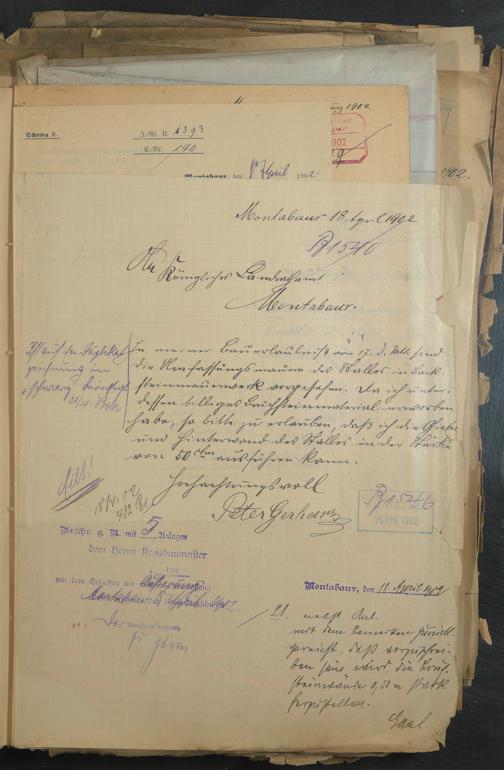 1902
Schema E.
J.-Nr. II. 1393
G.-Nr. 140
Montabaur, den 17 April 1902.
1902.
Montabaur 18. April 1902
B 1546
An
Königliches Landrathsamt
Montabaur.
In meiner Bauerlaubniß vom 17. d. Mts. sind
die Umfassungsmauern des Stalles in Back-
steinmauerwerk vorgesehen. Da ich unter-
dessen billiges Bruchsteinmaterial erworben
habe, so bitte zu erlauben, daß ich die Giebel
und Hinterwand des Stalles in der Stärke
von 50 ctm ausführen kann.
Hochachtungsvoll
Peter Gerharz
Ist auf der
in
schwarz
21/4.
Eilt!
18/4. 02
B 1546
18 APR. 1902
Urschr. g. R. mit 5 Anlagen
dem Herrn Kreisbaumeister
hier
mit dem Ersuchen um Äußerung
Montabaur,
Der
Montabaur, den 18. April 1902
U. nebst Anl.
mit dem Bemerken zurück
gereicht, daß vorzuschrei-
ben sein wird, die Bruch
steinwände 0,50 m stark
herzustellen.